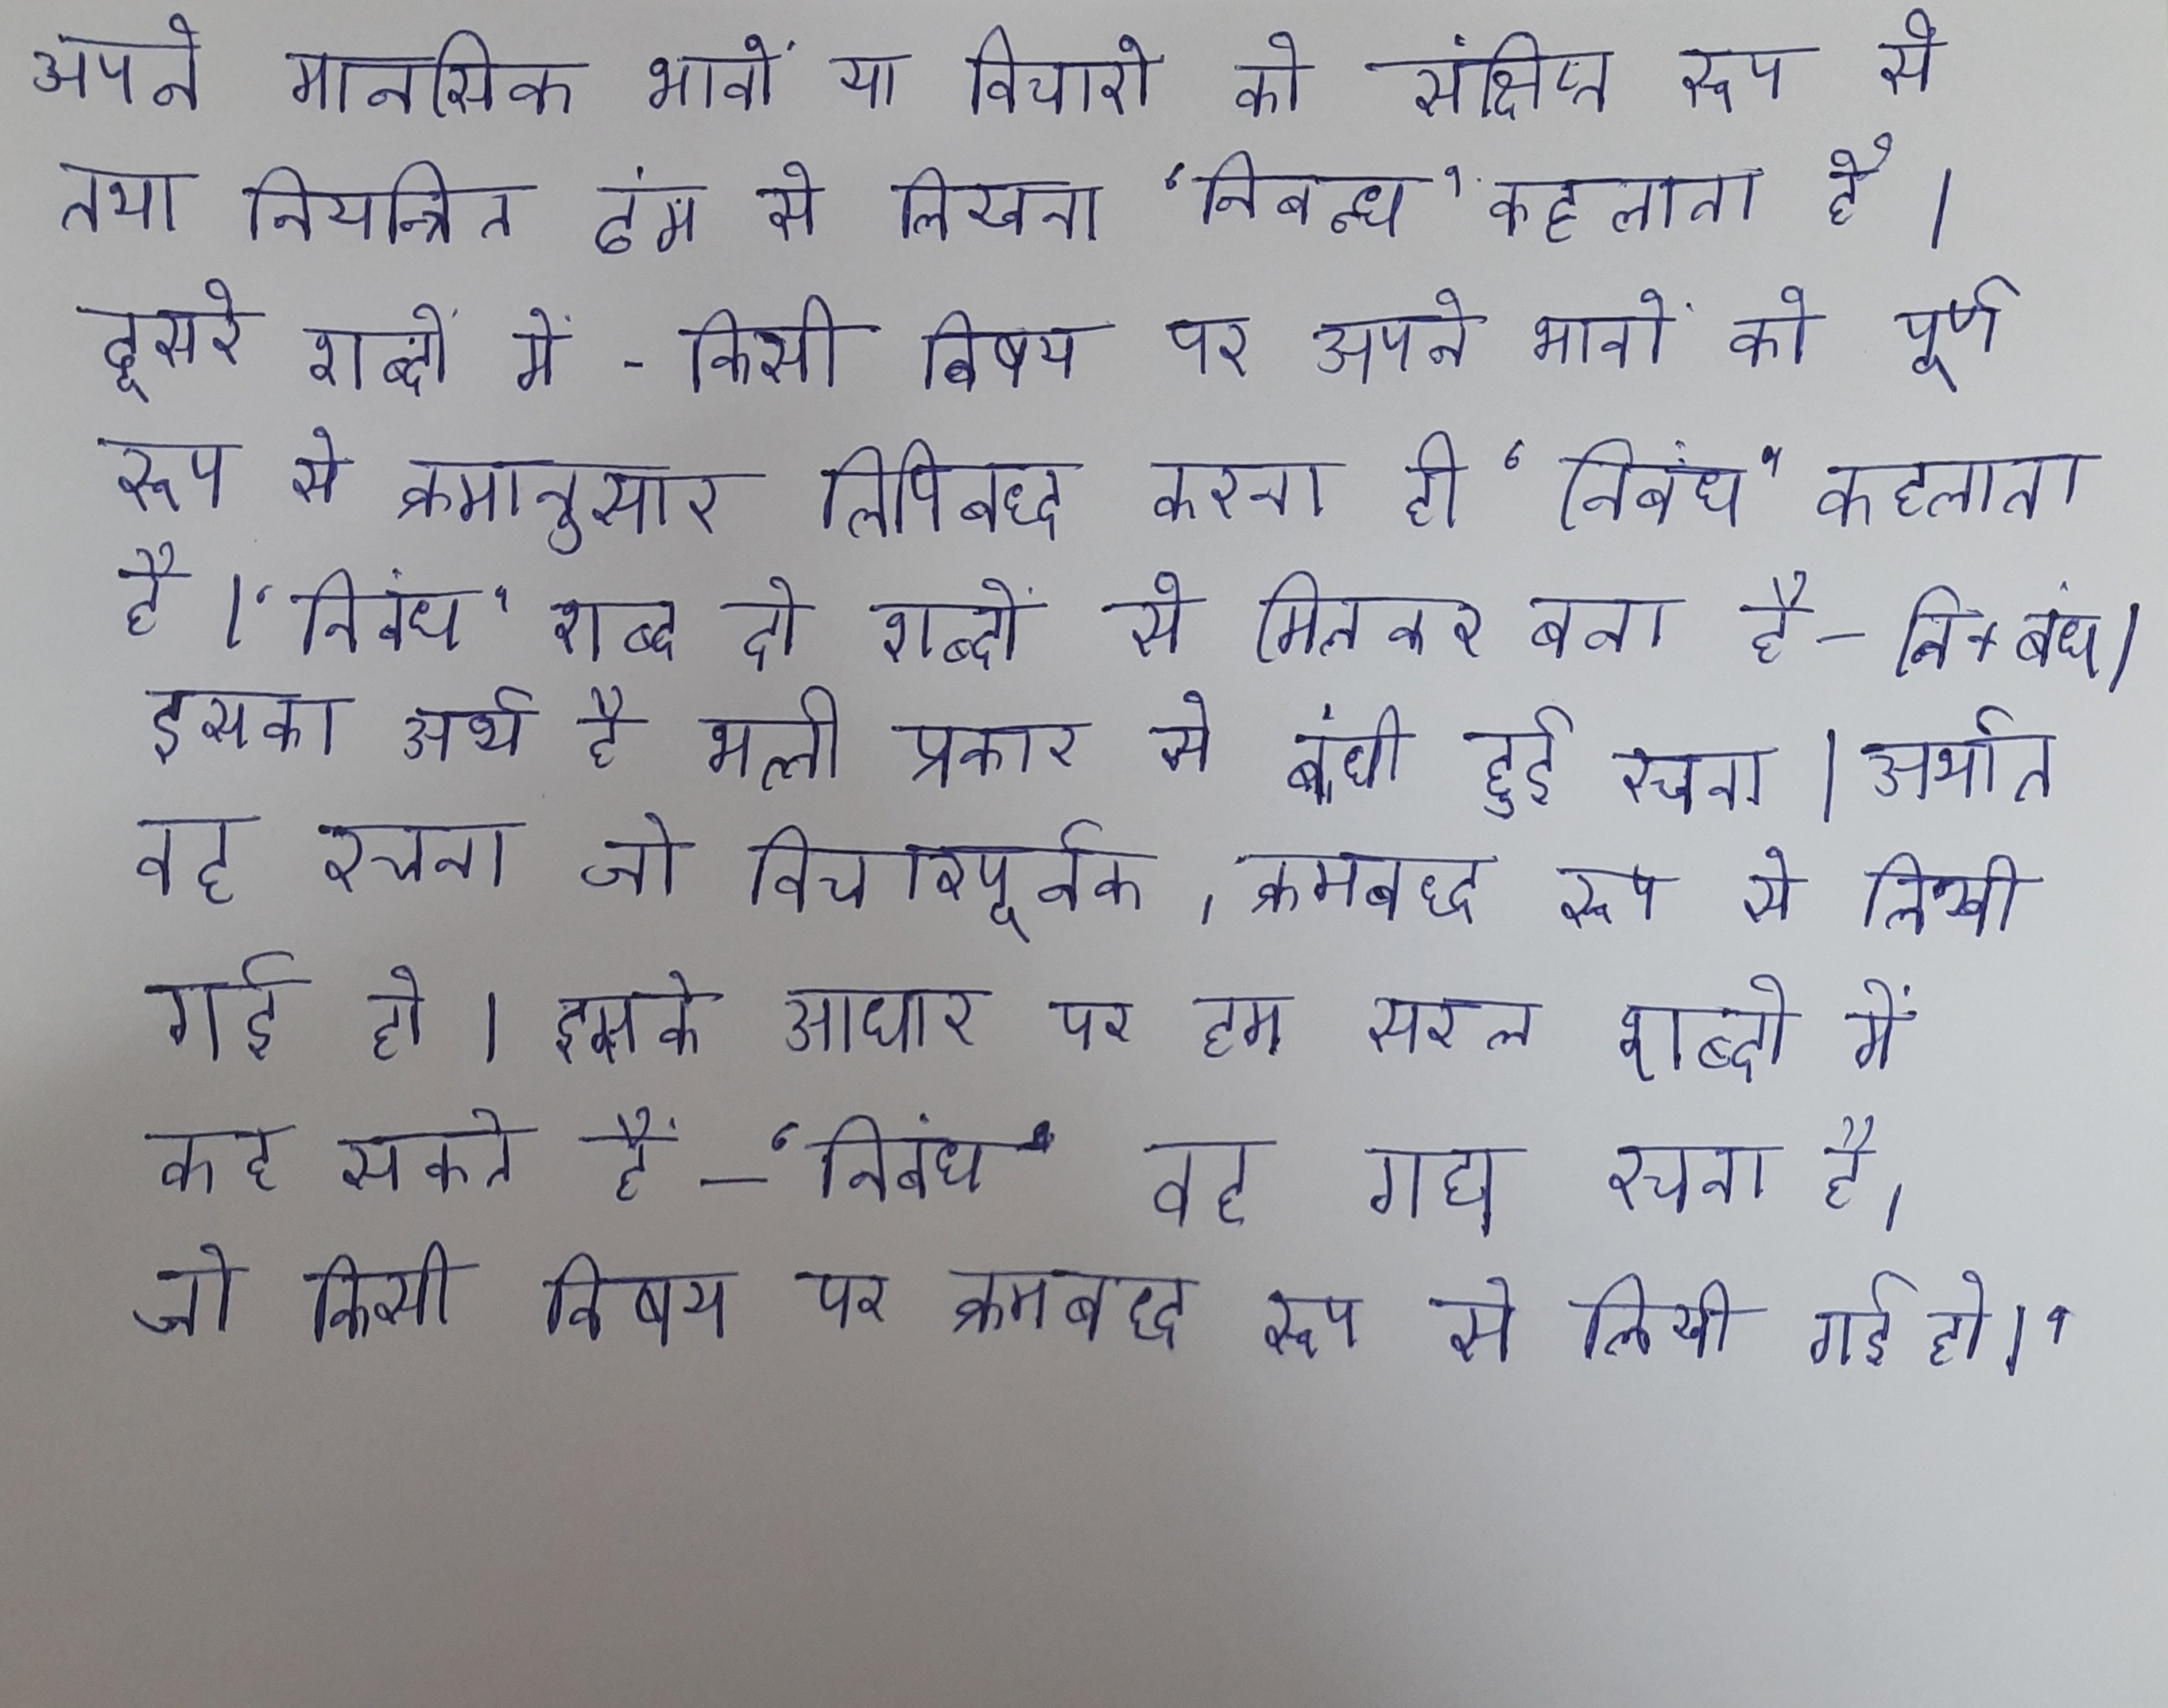 अपने मानसिक भावों या विचारो को संक्षिप्त रूप से
तथा नियन्त्रित ढंग से लिखना ‘निबन्ध’ कहलाता है ।
दूसरे शब्दों में - किसी विषय पर अपने भावों को पूर्ण
रूप से क्रमानुसार लिपिबध्द करना ही ‘निबंध’ कहलाता
है । ‘निबंध’ शब्द दो शब्दों से मिलकर बना है – नि + बंध।
इसका अर्थ है भली प्रकार से बंधी हुई रचना । अर्थात
वह रचना जो विचारपूर्वक , क्रमबध्द रूप से लिखी
गई हो । इसके आधार पर हम सरल शब्दो में
कह सकते हैं – ‘निबंध’ वह गद्य रचना है,
जो किसी विषय पर क्रमबध्द रूप से लिखी गई हो।’